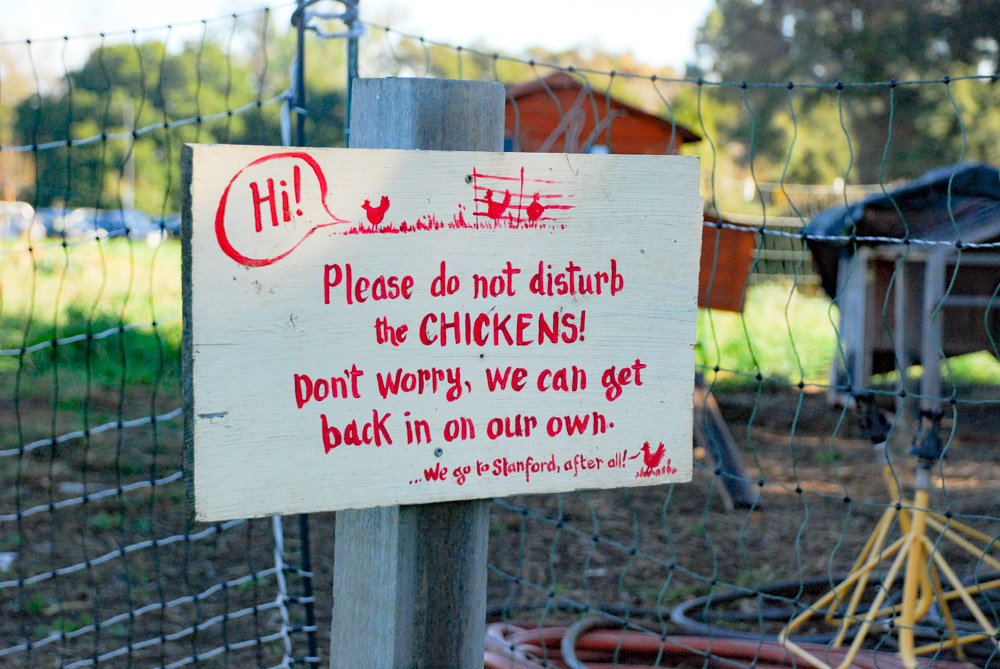 Hi!
Please do not disturb
the CHICKENS!
Don't worry, we can get
back in on our own.
...we go to Stanford, after all!